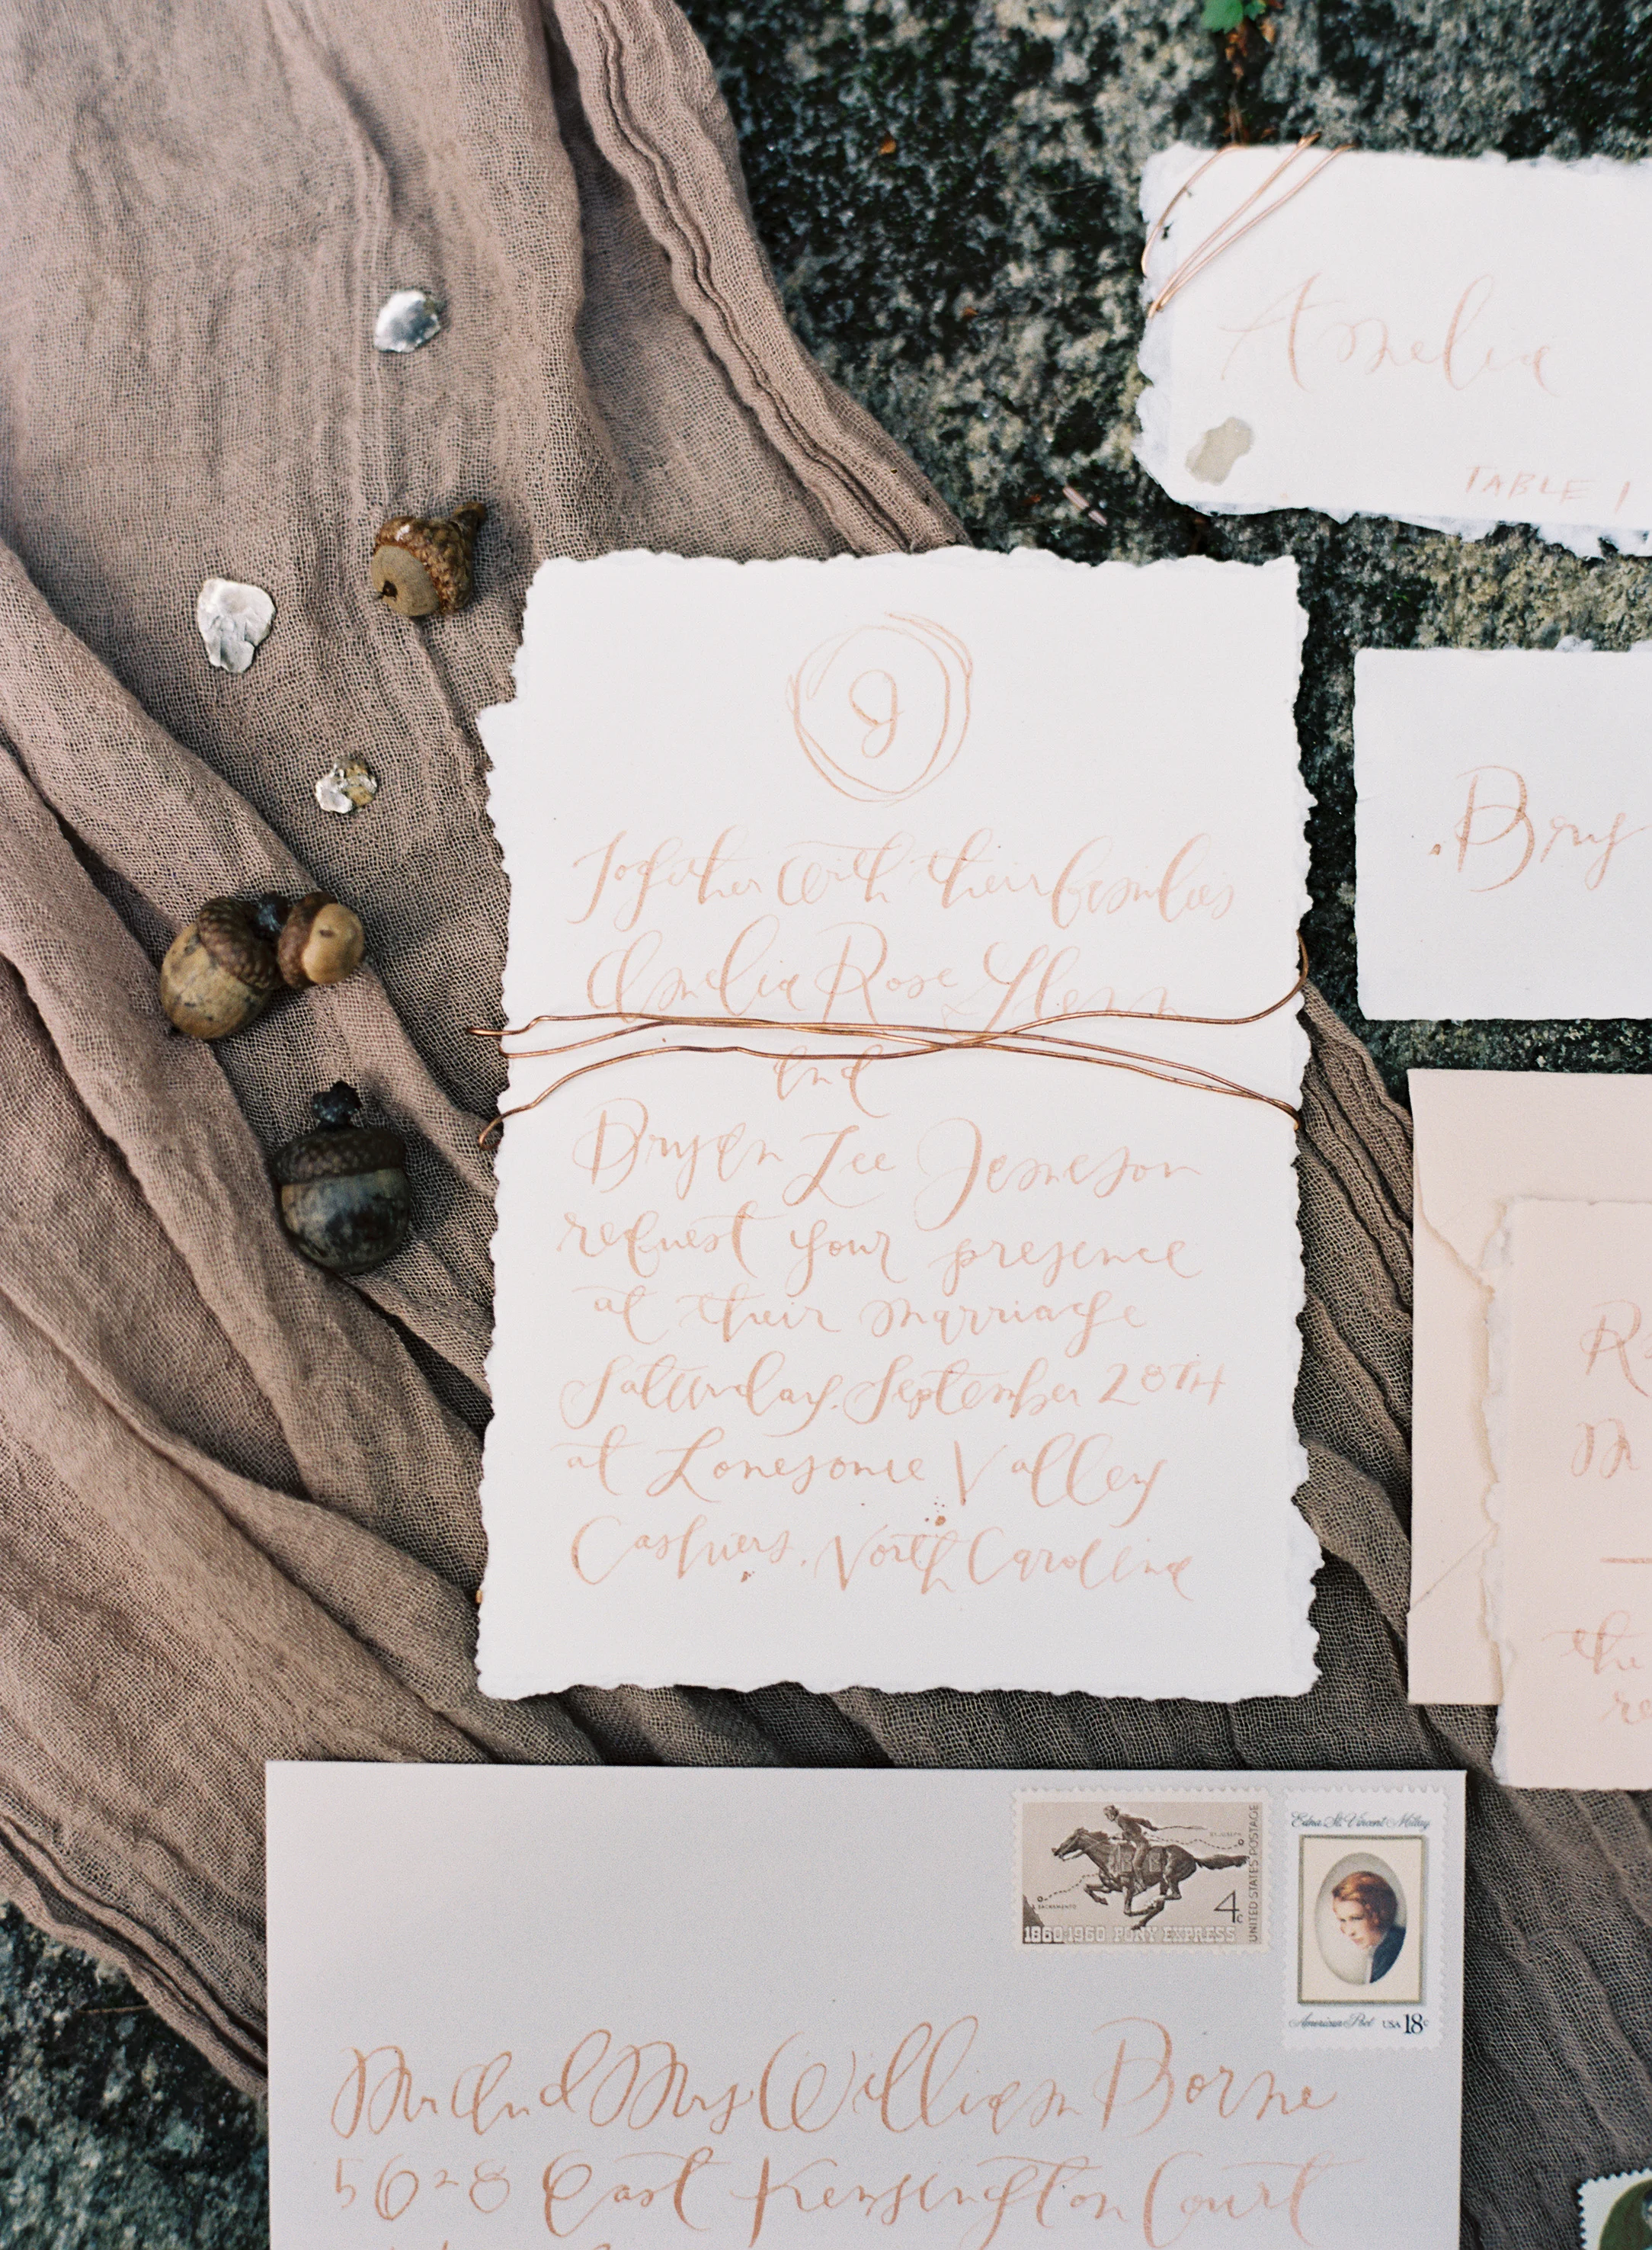 Amelia
TABLE 1
J
Together with their families
Amelia Rose Glenn
and
Bryan Lee Jameson
request your presence
at their marriage
Saturday, September 28TH
at Lonesome Valley
Cashiers, North Carolina
Bry
R
M
the
re
ST. JOSEPH
SACRAMENTO
4c
UNITED STATES POSTAGE
1860-1960 PONY EXPRESS
Edna St. Vincent Millay
American Poet USA 18c
Mr and Mrs William Borne
5628 East Kensington Court